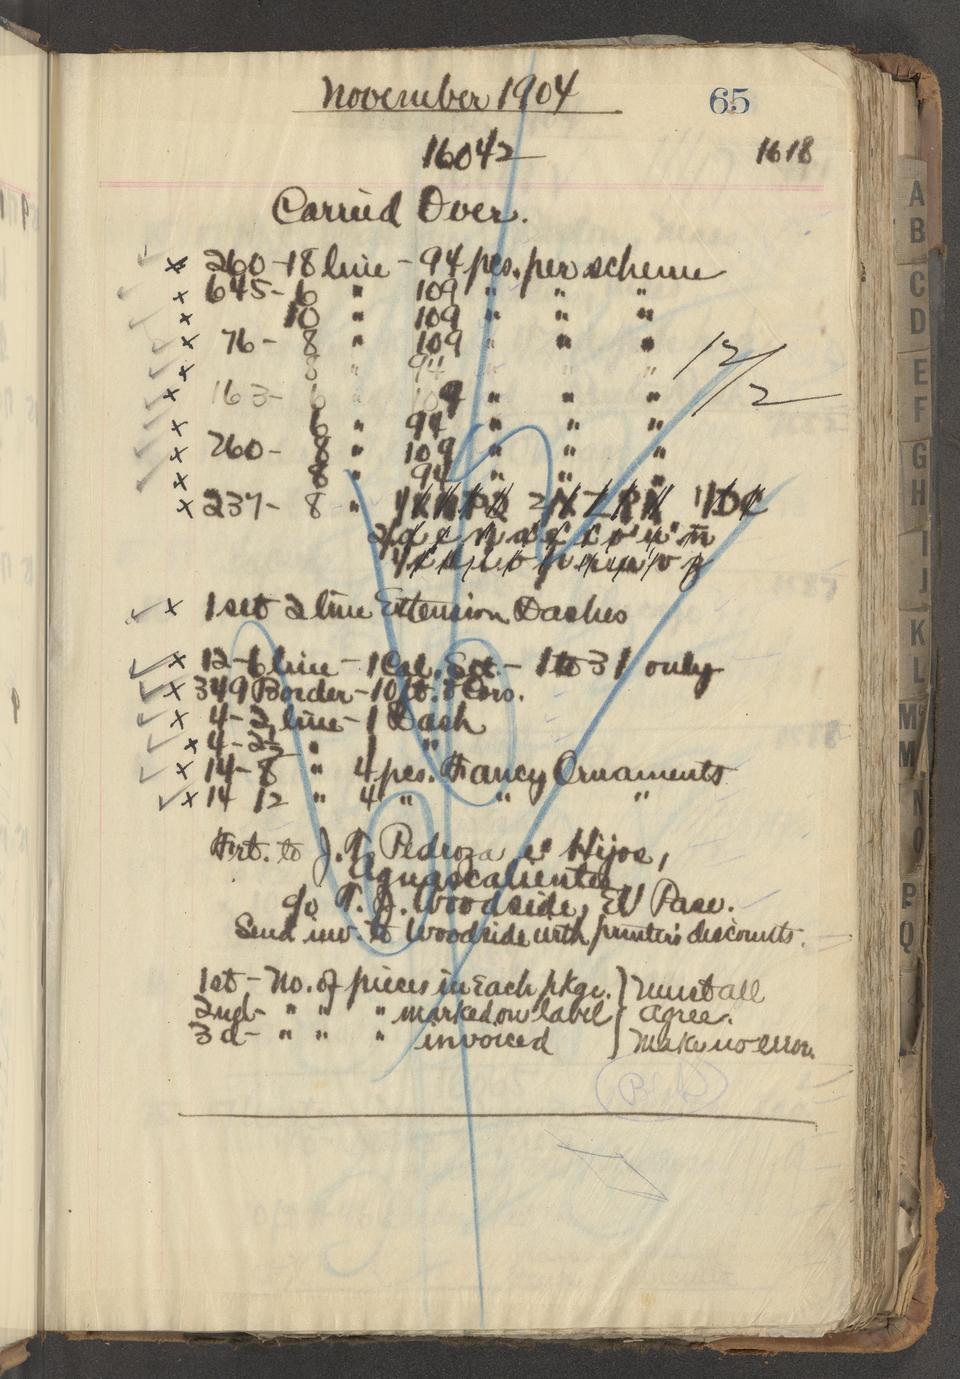 November 1904 65
16042 1618
Carried Over.
x 260-18 line - 94 pcs. per scheme
x 645-6 " 109 " " "
x 10 " 109 " " "
x 76-8 " 109 " " "
x 8 " 94 " " "
x 163-6 " 109 " " "
x 6 " 94 " " "
x 260-8 " 109 " " "
x 8 " 94 " " "
x 237-8 "
12/2
x 1 set 2 line Extension Dashes
x 12-6 line - 1 Cal. Set - 1 to 31 only
x 349 Border - 10 ft. & Cors.
x 4-2 line - 1 Dash
x 4-2½ " 1 "
x 14-8 " 4 pcs. Fancy Ornaments
x 14 12 " 4 " " "
Frt. to J. T. Pedroza e Hijos,
Aguascalientes
c/o T. J. Woodside, El Paso.
Send inv. to Woodside with printer's discounts.
1st - No. of pieces in Each pkge. } must all
2nd - " " " marked on label } agree.
3d - " " " invoiced } Make no error.
A
B
C
D
E
F
G
H
I
J
K
L
M
M
N
O
P
Q